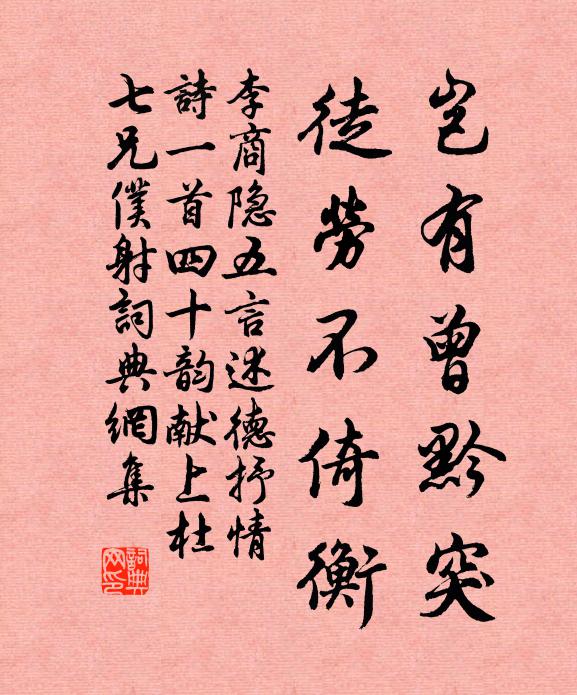 岂有曾黔突
徒勞不倚衡
李商隐五言述德抒情
詩一首四十韵献上杜
七兄僕射詞典網集
詞典网印